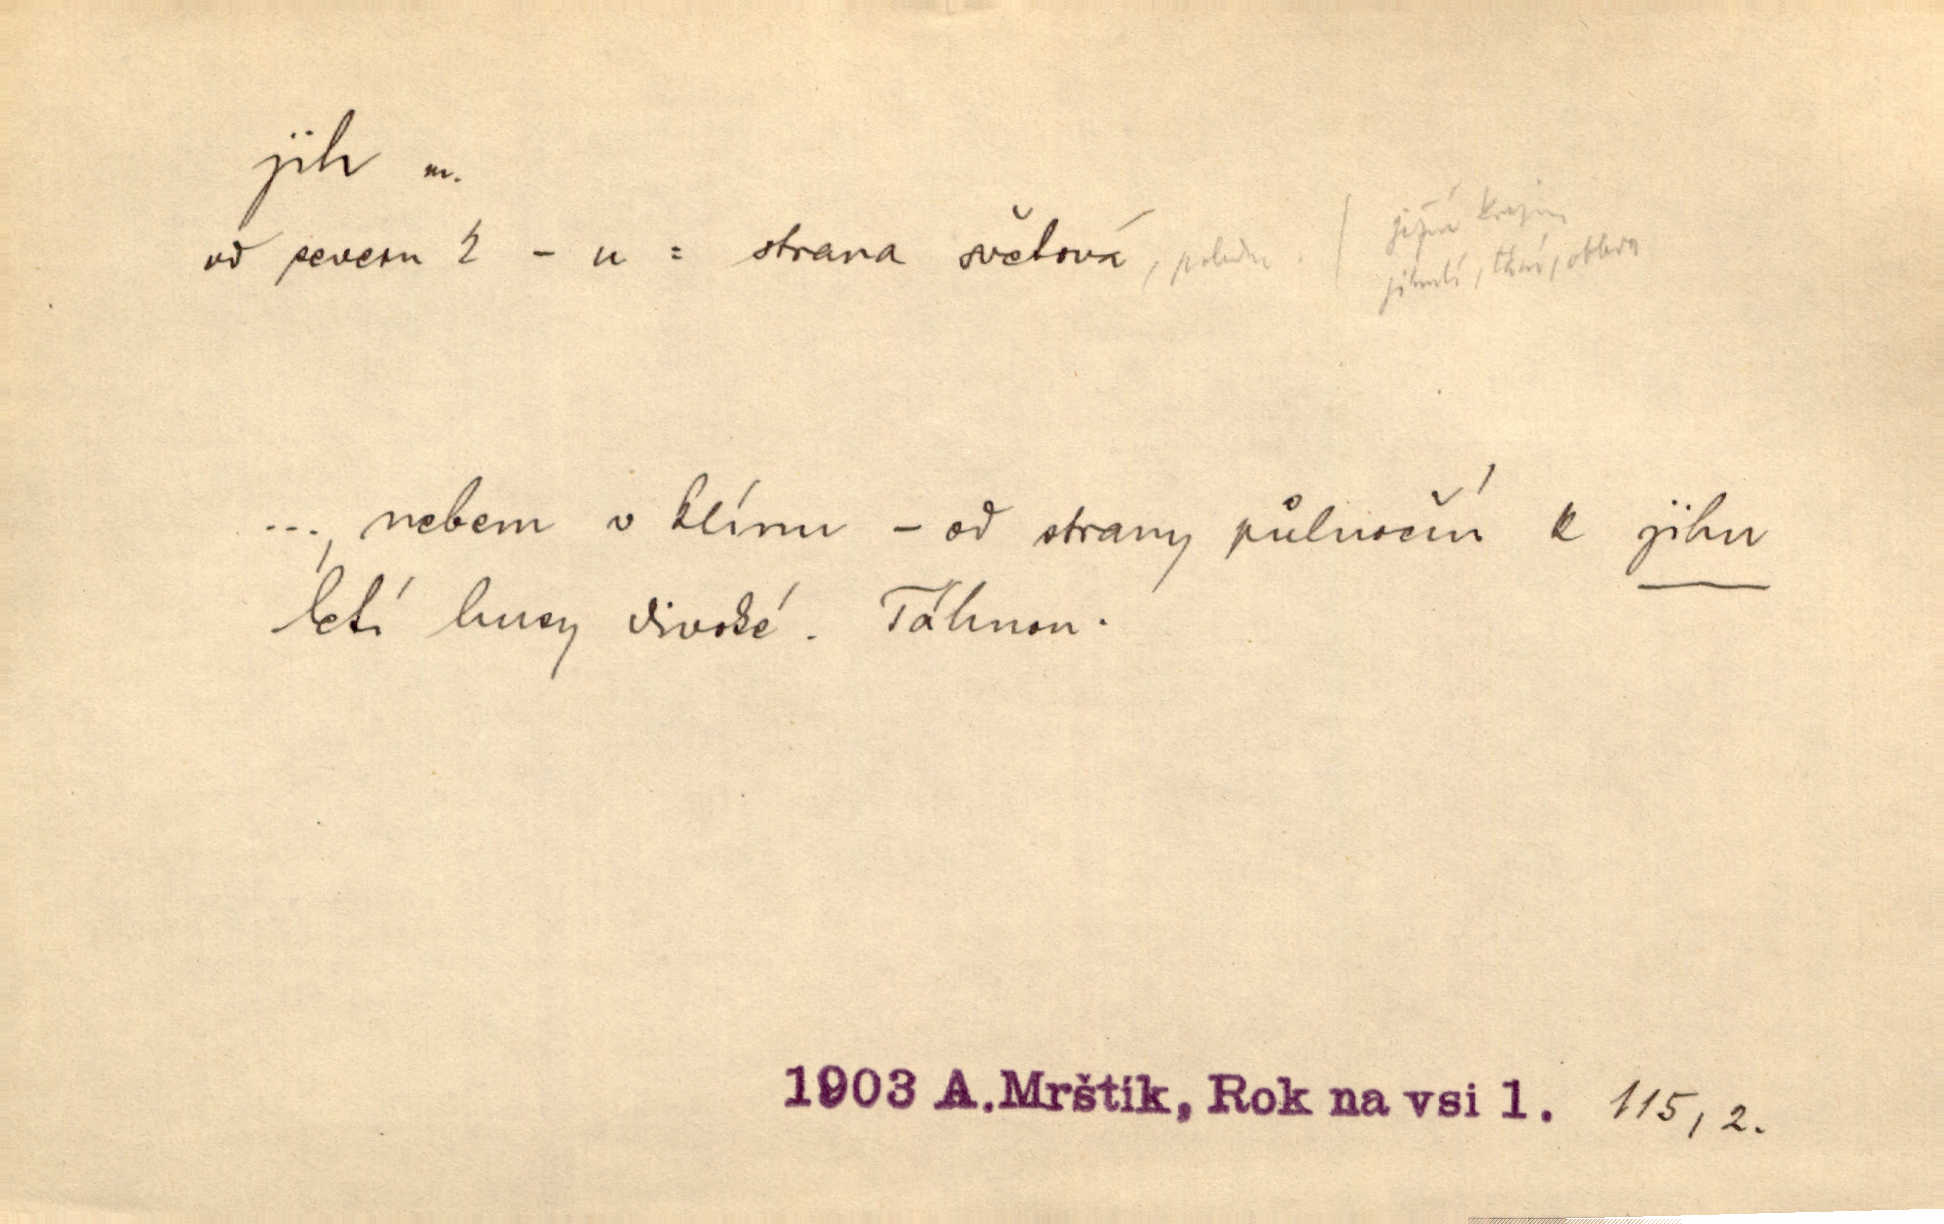 jih m.
od severu k – u = strana světová, poledne. | jižní krajiny
jihnutí, tání, obleva
..., nebem v klínu – od strany půlnoční k jihu
letí husy divoké. Táhnou.
1903 A. Mrštík, Rok na vsi 1. 115, 2.